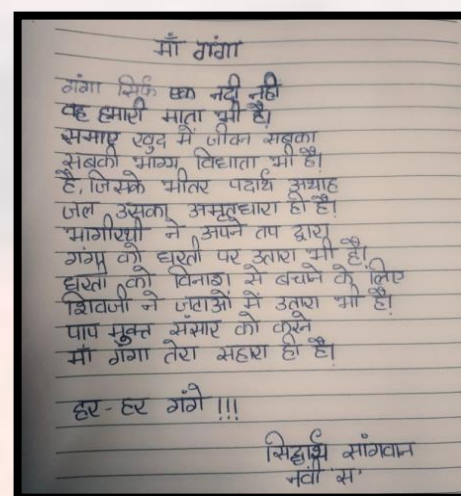 माँ गंगा
गंगा सिर्फ एक नदी नहीं
वह हमारी माता भी है।
समाए खुद में जीवन सबका
सबकी भाग्य विधाता भी है।
है, जिसके भीतर पदार्थ अथाह
जल उसका अमृतधारा ही है।
भागीरथी ने अपने तप द्वारा
गंगा को धरती पर उतारा भी है।
धरती को विनाश से बचाने के लिए
शिवजी ने जटाओं में उतारा भी है।
पाप मुक्त संसार को करने
माँ गंगा तेरा सहारा ही है।
हर-हर गंगे !!!
सिद्धार्थ सांगवान
नवीं 'स'